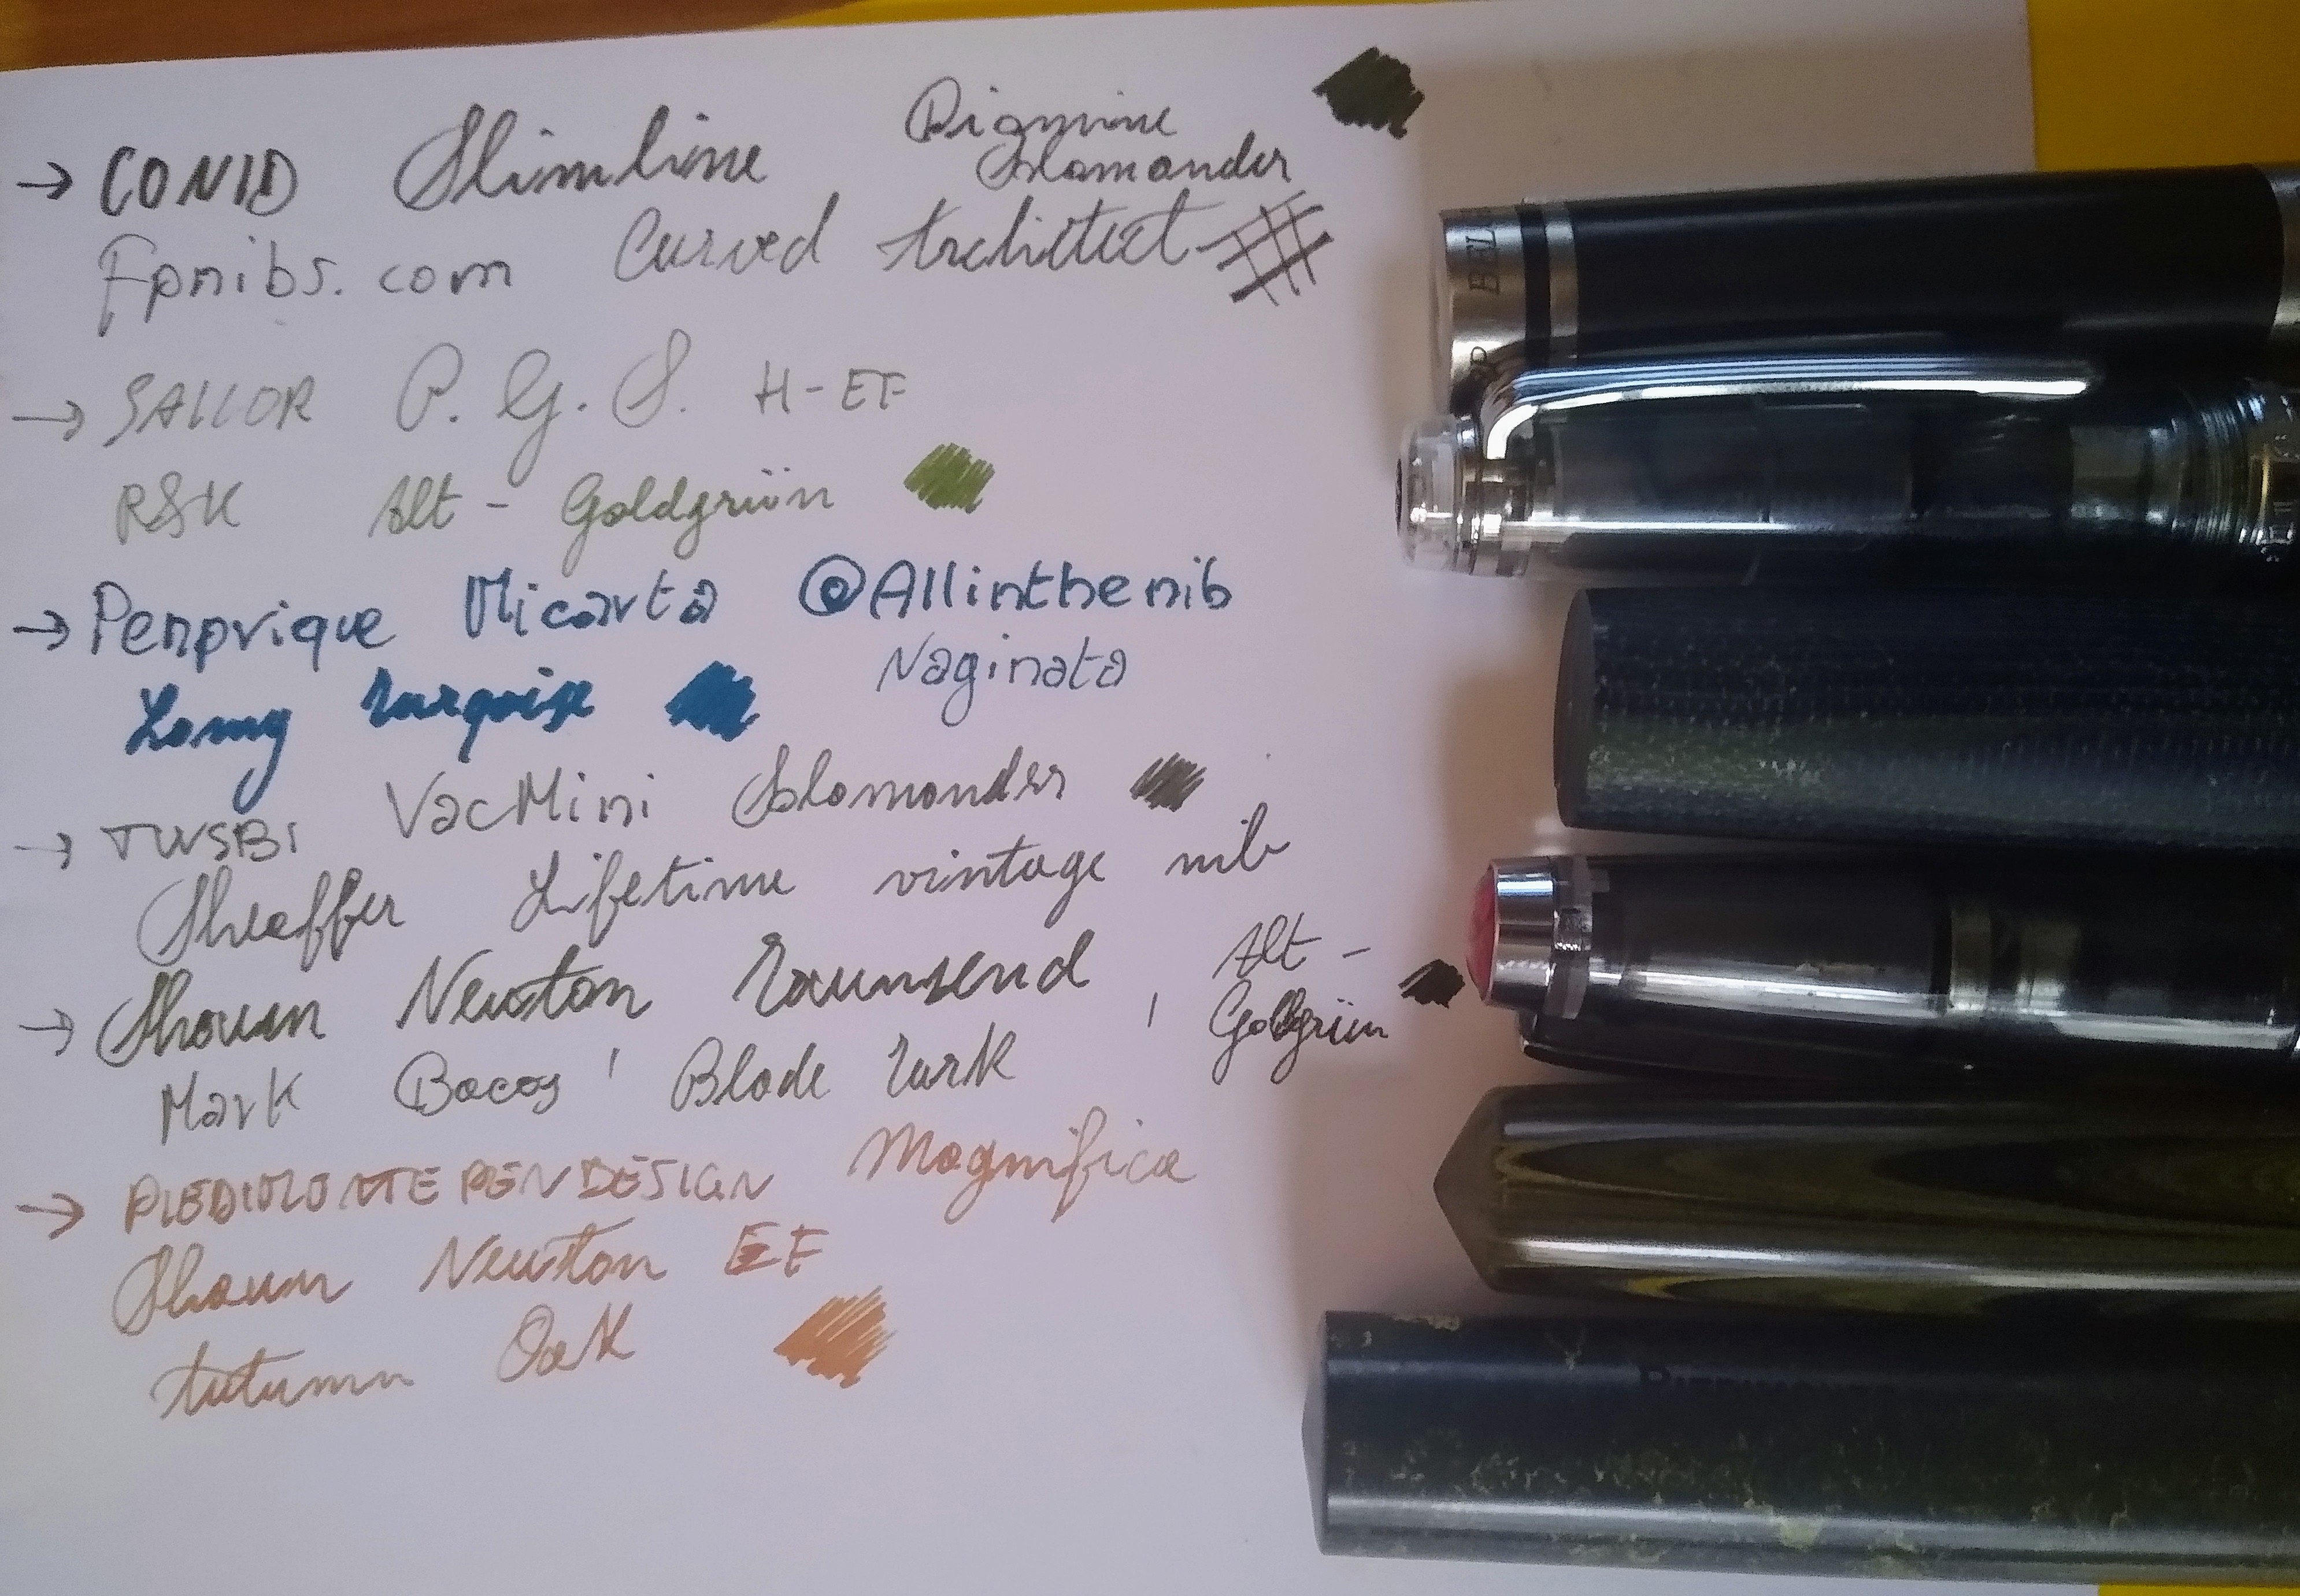 → CONID Slimline Pigmine
Salamander
Fpnibs.com Curved Architect
→ SAILOR P.G.S. H-EF
R&K Alt-Goldgrün
→ Penprique Micarta @Allinthenib
Naginata
Lamy Turqoise
→ TWSBI VacMini Salamander
Sheaffer Lifetime vintage nib
→ Shawn Newton Townsend
Alt-
Goldgrün
Mark Bacas' Blade Turk
→ PIEDIMONTE PEN DESIGN Magnifica
Shawn Newton EF
Autumn Oak
BEL
PIEDIMONTE